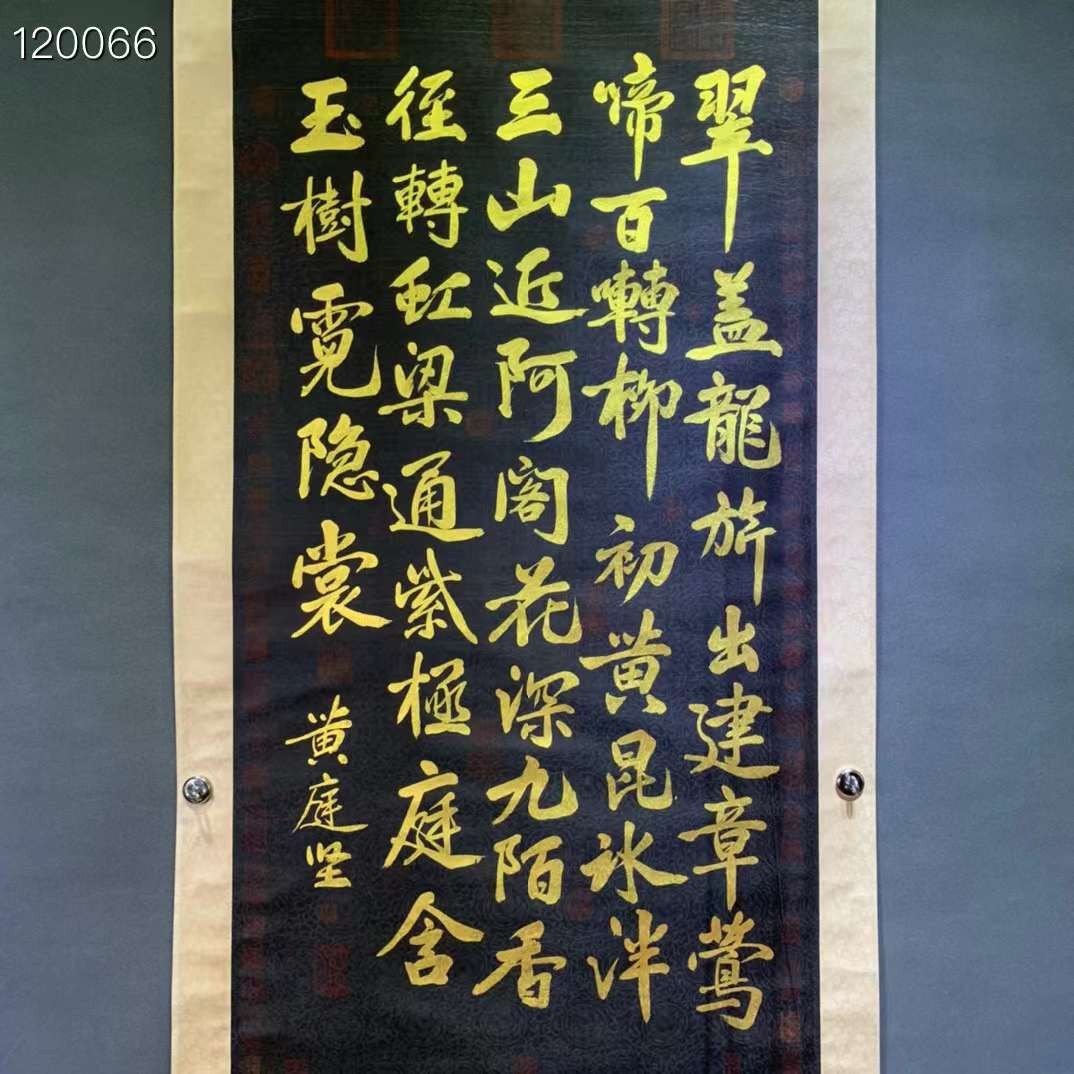 120066
翠盖龍旂出建章鶯
啼百囀柳初黄昆氷泮
三山近阿阁花深九陌香
径轉虹梁通紫極庭含
玉樹霓隐裳
黄庭坚